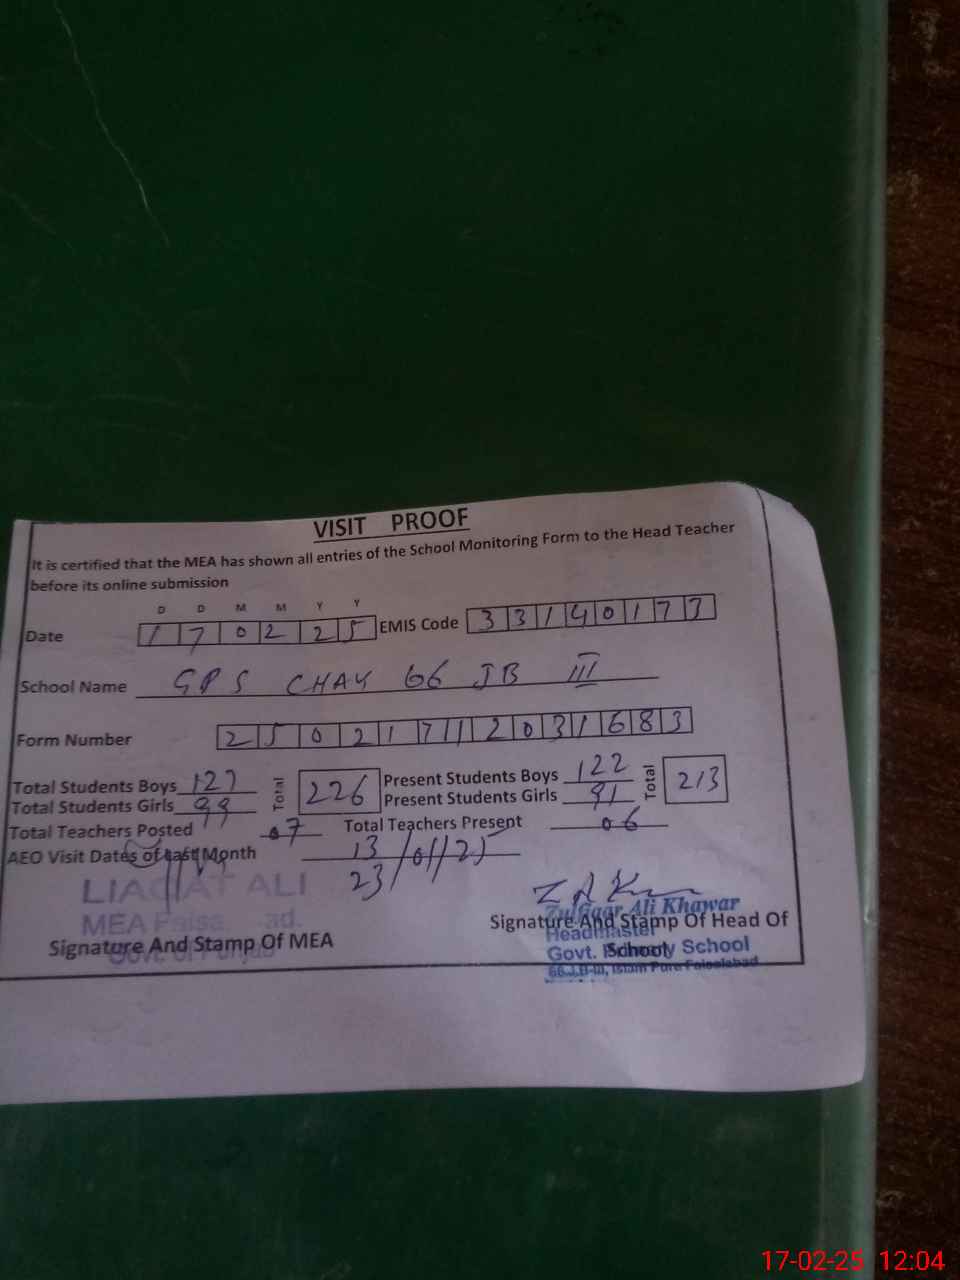 VISIT PROOF
It is certified that the MEA has shown all entries of the School Monitoring Form to the Head Teacher
before its online submission
D D M M Y Y
Date 1 7 0 2 2 5 EMIS Code 3 3 1 4 0 1 7 3
School Name GPS CHAK 66 JB III
Form Number 2 5 0 2 1 7 1 1 2 0 3 1 6 8 3
Total Students Boys 127 Total 226 Present Students Boys 122 Total 213
Total Students Girls 99 Present Students Girls 91
Total Teachers Posted 07 Total Teachers Present 06
AEO Visit Dates of Last Month 13/01/25
23/
LIAQAT ALI
MEA
Signature And Stamp Of MEA
Govt. of Punjab
Zulfiqar Ali Khawar
Signature And Stamp Of Head Of
Headmaster
School
Govt. Primary School
66 J.B-III, Islam Pura Faisalabad
17-02-25 12:04